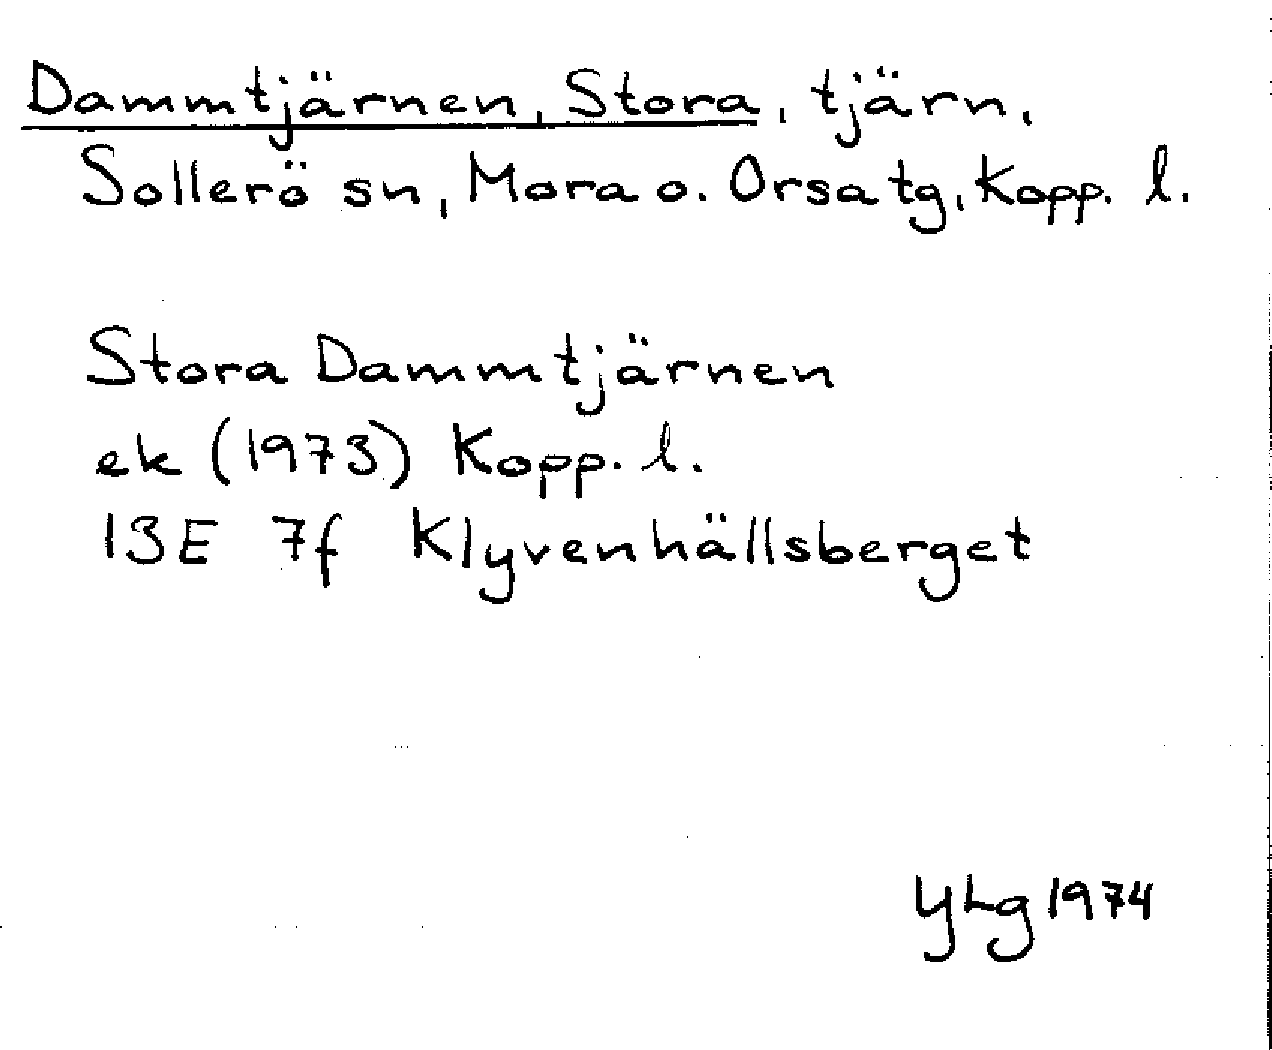 Dammtjärnen, Stora, tjärn,
Sollerö sn, Mora o. Orsa tg, Kopp. l.
Stora Dammtjärnen
ek (1973) Kopp. l.
13E 7f Klyvenhällsberget
YLg 1974